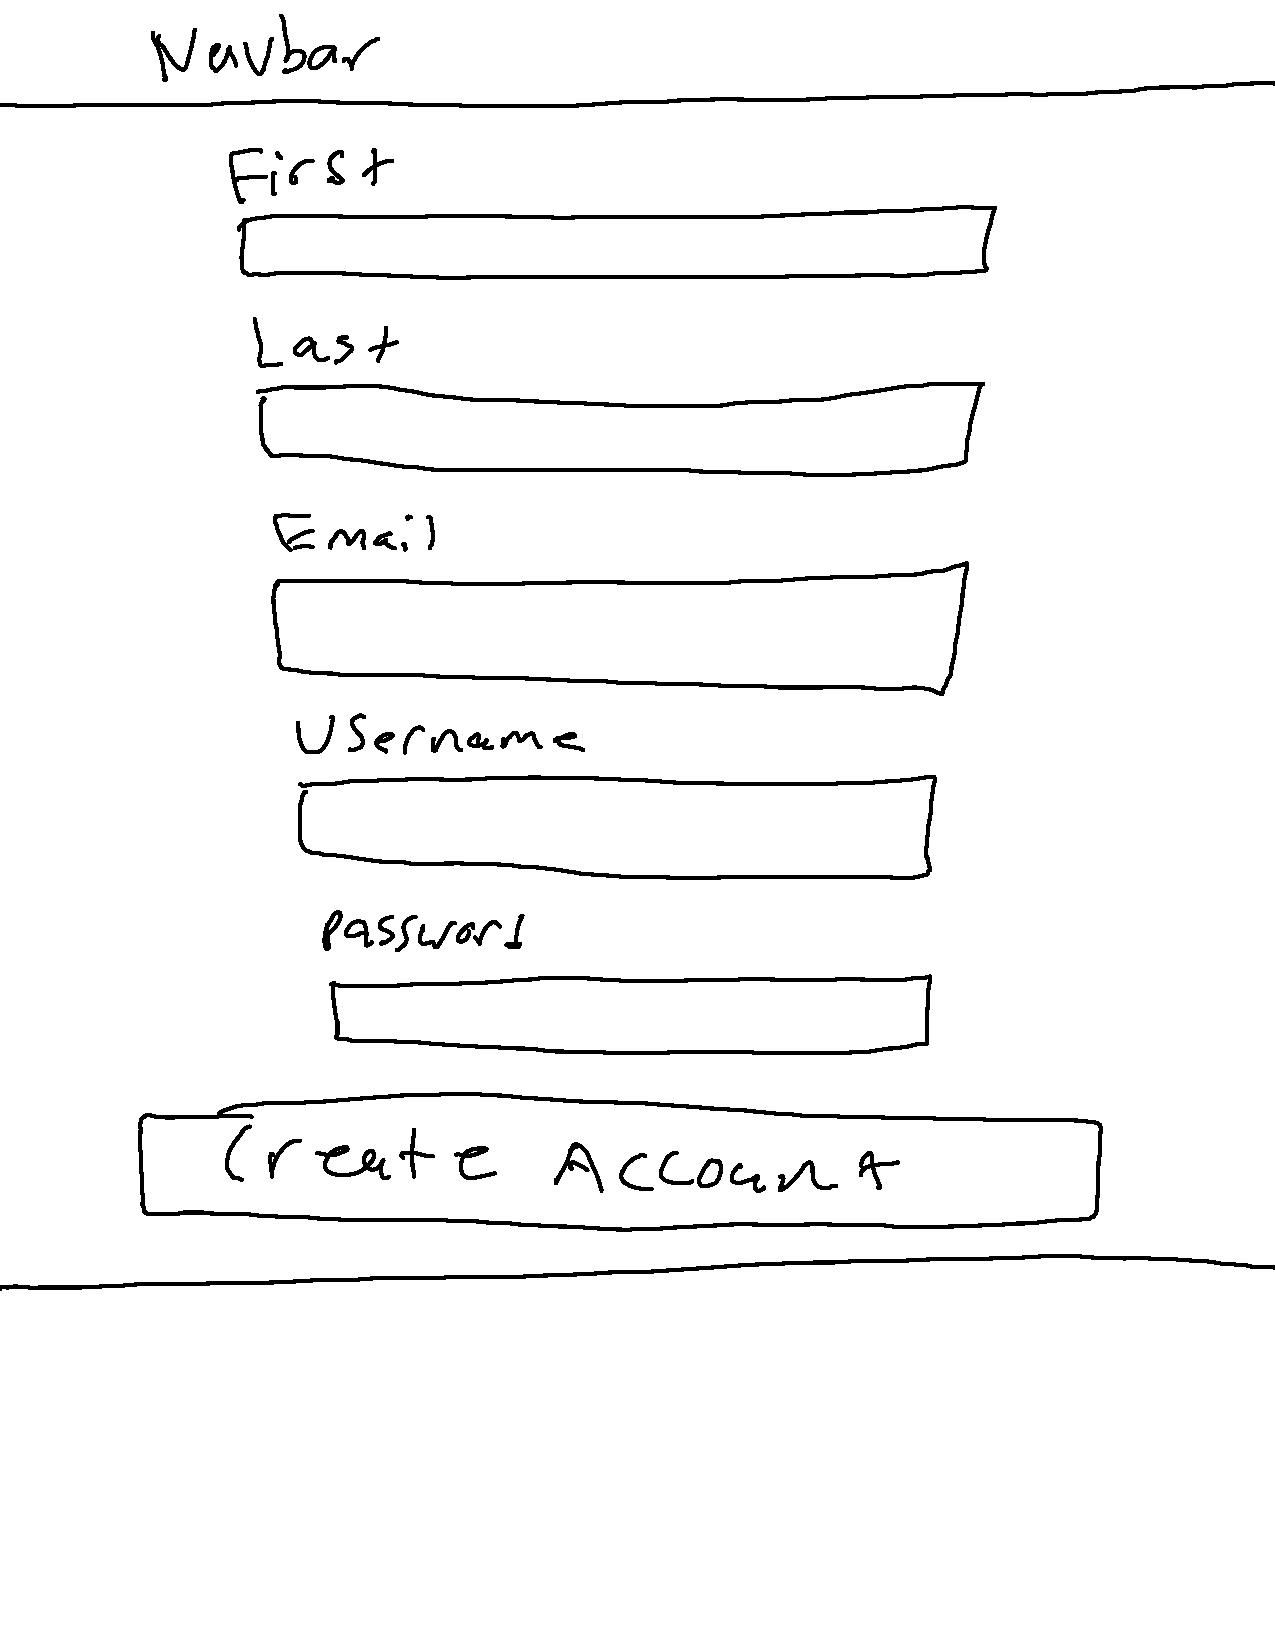 Navbar
First
Last
Email
Username
Password
Create Account